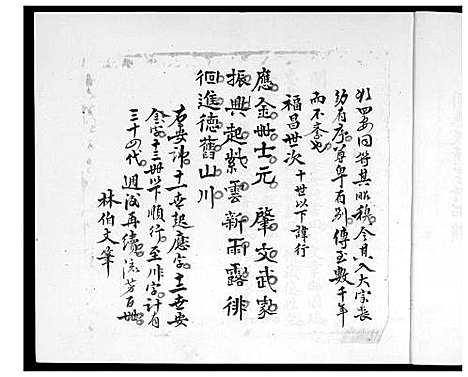 四安回符其昭穆合其入大宗喪
幼有序尊卑有別傳至數千年
而不紊也
福昌世次 十世以下諱行
應金冊士元 肇文武家
振興起紫雲新雨露徘
徊進德舊山川
右安諱十一世起應字十二世安
金字十三冊以下順行至川字計有
三十四代週後再續流芳百世
林伯文筆